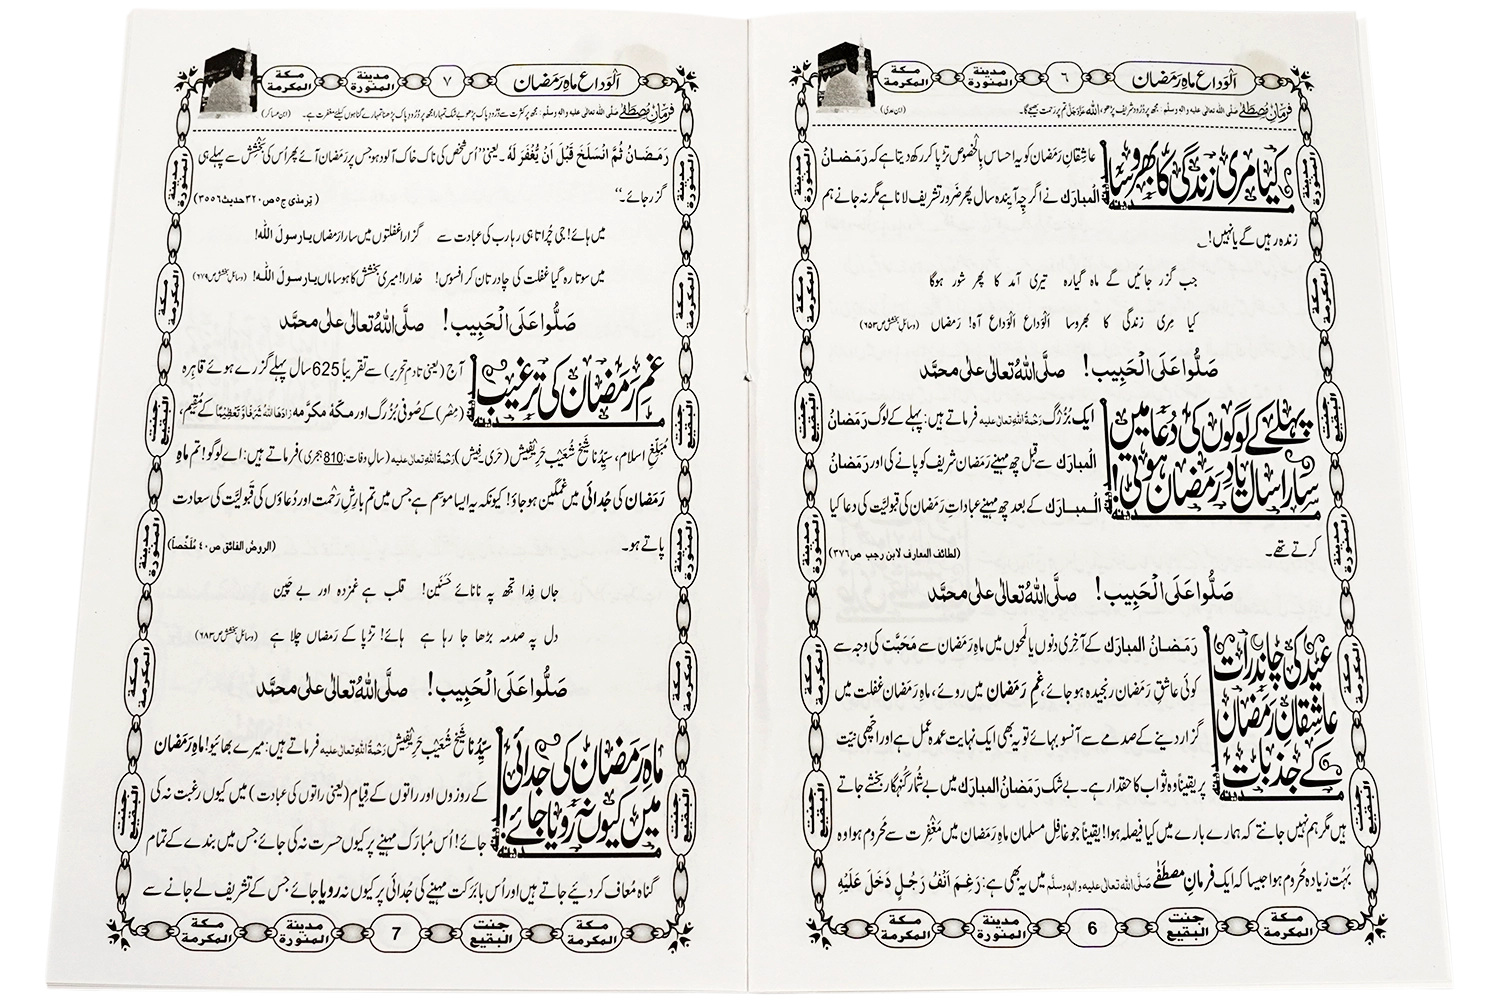 اَلْوَداع ماہِ رَمَضان
٦
مدینة المنورة
مکة المکرمة
فرمانِ مُصطَفٰے صلَّی اللہ تعالٰی علیہ واٰلہ وسلَّم: مجھ پر دُرُود شریف پڑھو، اللہ عَزَّوَجَلَّ تم پر رحمت بھیجے گا۔ (ابن عدی)
کیا مری زندگی کا بھروسا
عاشِقانِ رَمَضان کو یہ احساس بِالْخصوص تڑپا کر رکھ دیتا ہے کہ رَمَضانُ
الْمُبارَک نے اگر چِہ آیندہ سال پھر ضَرور تشریف لانا ہے مگر نہ جانے ہم
زندہ رہیں گے یا نہیں!
جب گزر جائیں گے ماہ گیارہ تیری آمد کا پھر شور ہوگا
کیا مِری زندگی کا بھروسا اَلوَداع اَلوَداع آہ! رَمَضاں (وسائلِ بخشش ص۶۵۳)
صَلُّوا عَلَی الْحَبِیب! صلَّی اللهُ تعالٰی علٰی محمَّد
پہلے کے لوگوں کی دُعا میں
سارا سال یادِ رَمَضان ہوتی!
ایک بُزُرْگ رَحْمَةُ اللهِ تعالٰی علیه فرماتے ہیں: پہلے کے لوگ رَمَضانُ
الْمبارَک سے قبل چھ مہینے رَمَضان شریف کو پانے کی اور رَمَضانُ
الْمبارَک کے بعد چھ مہینے عباداتِ رَمَضان کی قبولیّت کی دعا کیا
کرتے تھے۔ (لطائف المعارف لابن رجب ص۳۷۶)
صَلُّوا عَلَی الْحَبِیب! صلَّی اللهُ تعالٰی علٰی محمَّد
عید کی چاند رات
عاشِقانِ رَمَضان
کے جذبات
رَمَضانُ المبارَک کے آخری دنوں یا لمحوں میں ماہِ رَمَضان سے مَحَبَّت کی وجہ سے
کوئی عاشقِ رَمَضان رنجیدہ ہو جائے، غمِ رَمَضان میں روئے، ماہِ رَمَضان غفلت میں
گزار دینے کے صدمے سے آنسو بہائے تو یہ بھی ایک نہایت عمدہ عمل ہے اور اچّھی نیّت
پر یقیناً وہ ثواب کا حقدار ہے۔ بے شک رَمَضانُ المبارَک میں بے شُمار گُنہگار بخشے جاتے
ہیں مگر ہم نہیں جانتے کہ ہمارے بارے میں کیا فیصلہ ہوا! یقیناً جو غافِل مسلمان ماہِ رَمَضان میں مَغْفِرت سے مَحْروم ہوا وہ
بَہُت زیادہ مَحْروم ہوا جیسا کہ ایک فرمانِ مصطَفٰے صلَّی اللہ تعالٰی علیہ واٰلہٖ وسلَّم میں یہ بھی ہے: رَغِمَ اَنْفُ رَجُلٍ دَخَلَ عَلَیْهِ
مکة المکرمة
جنت البقیع
6
مدینة المنورة
مکة المکرمة
اَلْوَداع ماہِ رَمَضان
٧
مدینة المنورة
مکة المکرمة
فرمانِ مُصطَفٰے صلَّی اللہ تعالٰی علیہ واٰلہ وسلَّم: مجھ پر کثرت سے دُرُودِ پاک پڑھو بے شک تمہارا مجھ پر دُرُودِ پاک پڑھنا تمہارے گناہوں کیلئے مغفرت ہے۔ (ابن عساکر)
رَمَضَانُ ثُمَّ انْسَلَخَ قَبْلَ اَنْ یُّغْفَرَ لَهُ۔ یعنی ’’اُس شخص کی ناک خاک آلود ہو جس پر رَمَضان آئے پھر اُس کی بخشش سے پہلے ہی
گزر جائے۔‘‘ (ترمذی ج۵ ص۳۲۰ حدیث۳۵۵۶)
میں ہائے! جی چُراتا ہی رہا رب کی عبادت سے گزارا غفلتوں میں سارا رَمَضاں یا رسولَ الله!
میں سوتا رہ گیا غفلت کی چادر تان کر افسوس! خدارا! میری بخشش کا ہو ساماں یا رسولَ الله! (وسائلِ بخشش ص۶۷۹)
صَلُّوا عَلَی الْحَبِیب! صلَّی اللهُ تعالٰی علٰی محمَّد
غمِ رَمَضان کی ترغیب
آج (یعنی تادمِ تحریر) سے تقریباً 625 سال پہلے گزرے ہوئے قاہِرہ
(مِصْر) کے صُوفی بُزُرگ اور مکّۂ مکرَّمہ زَادَهَا اللهُ شَرَفًا وَّتَعْظِیْمًا کے مُقِیم،
مُبَلِّغِ اسلام، سیّدُنا شیخ شُعَیْب حَرِیْفِیْش (حَرِی۔فِیش) رَحْمَةُ اللهِ تعالٰی علیه (سالِ وفات: 810 ہجری) فرماتے ہیں: اے لوگو! تم ماہِ
رَمَضان کی جُدائی میں غمگین ہو جاؤ! کیونکہ یہ ایسا موسِم ہے جس میں تم بارِشِ رَحْمت اور دُعاؤں کی قبولیَّت کی سعادت
پاتے ہو۔ (الروض الفائق ص۴۰ مُلَخَّصاً)
جاں فِدا تجھ پہ نانائے حَسَنین! قلب ہے غمزدہ اور بے چَین
دل پہ صدمہ بڑھا جا رہا ہے ہائے! تڑپا کے رَمَضاں چلا ہے (وسائلِ بخشش ص۶۸۳)
صَلُّوا عَلَی الْحَبِیب! صلَّی اللهُ تعالٰی علٰی محمَّد
ماہِ رَمَضان کی جُدائی
میں کیوں نہ رویا جائے!
سیّدُنا شیخ شُعَیْب حَرِیْفِیْش رَحْمَةُ اللهِ تعالٰی علیه فرماتے ہیں: میرے بھائیو! ماہِ رَمَضان
کے روزوں اور راتوں کے قِیام (یعنی راتوں کی عبادت) میں کیوں رغبت نہ کی
جائے! اُس مُبارَک مہینے پر کیوں حسرت نہ کی جائے جس میں بندے کے تمام
گناہ مُعاف کر دیے جاتے ہیں اور اُس بابَرَکت مہینے کی جُدائی پر کیوں نہ رویا جائے جس کے تشریف لے جانے سے
مکة المکرمة
جنت البقیع
7
مدینة المنورة
مکة المکرمة